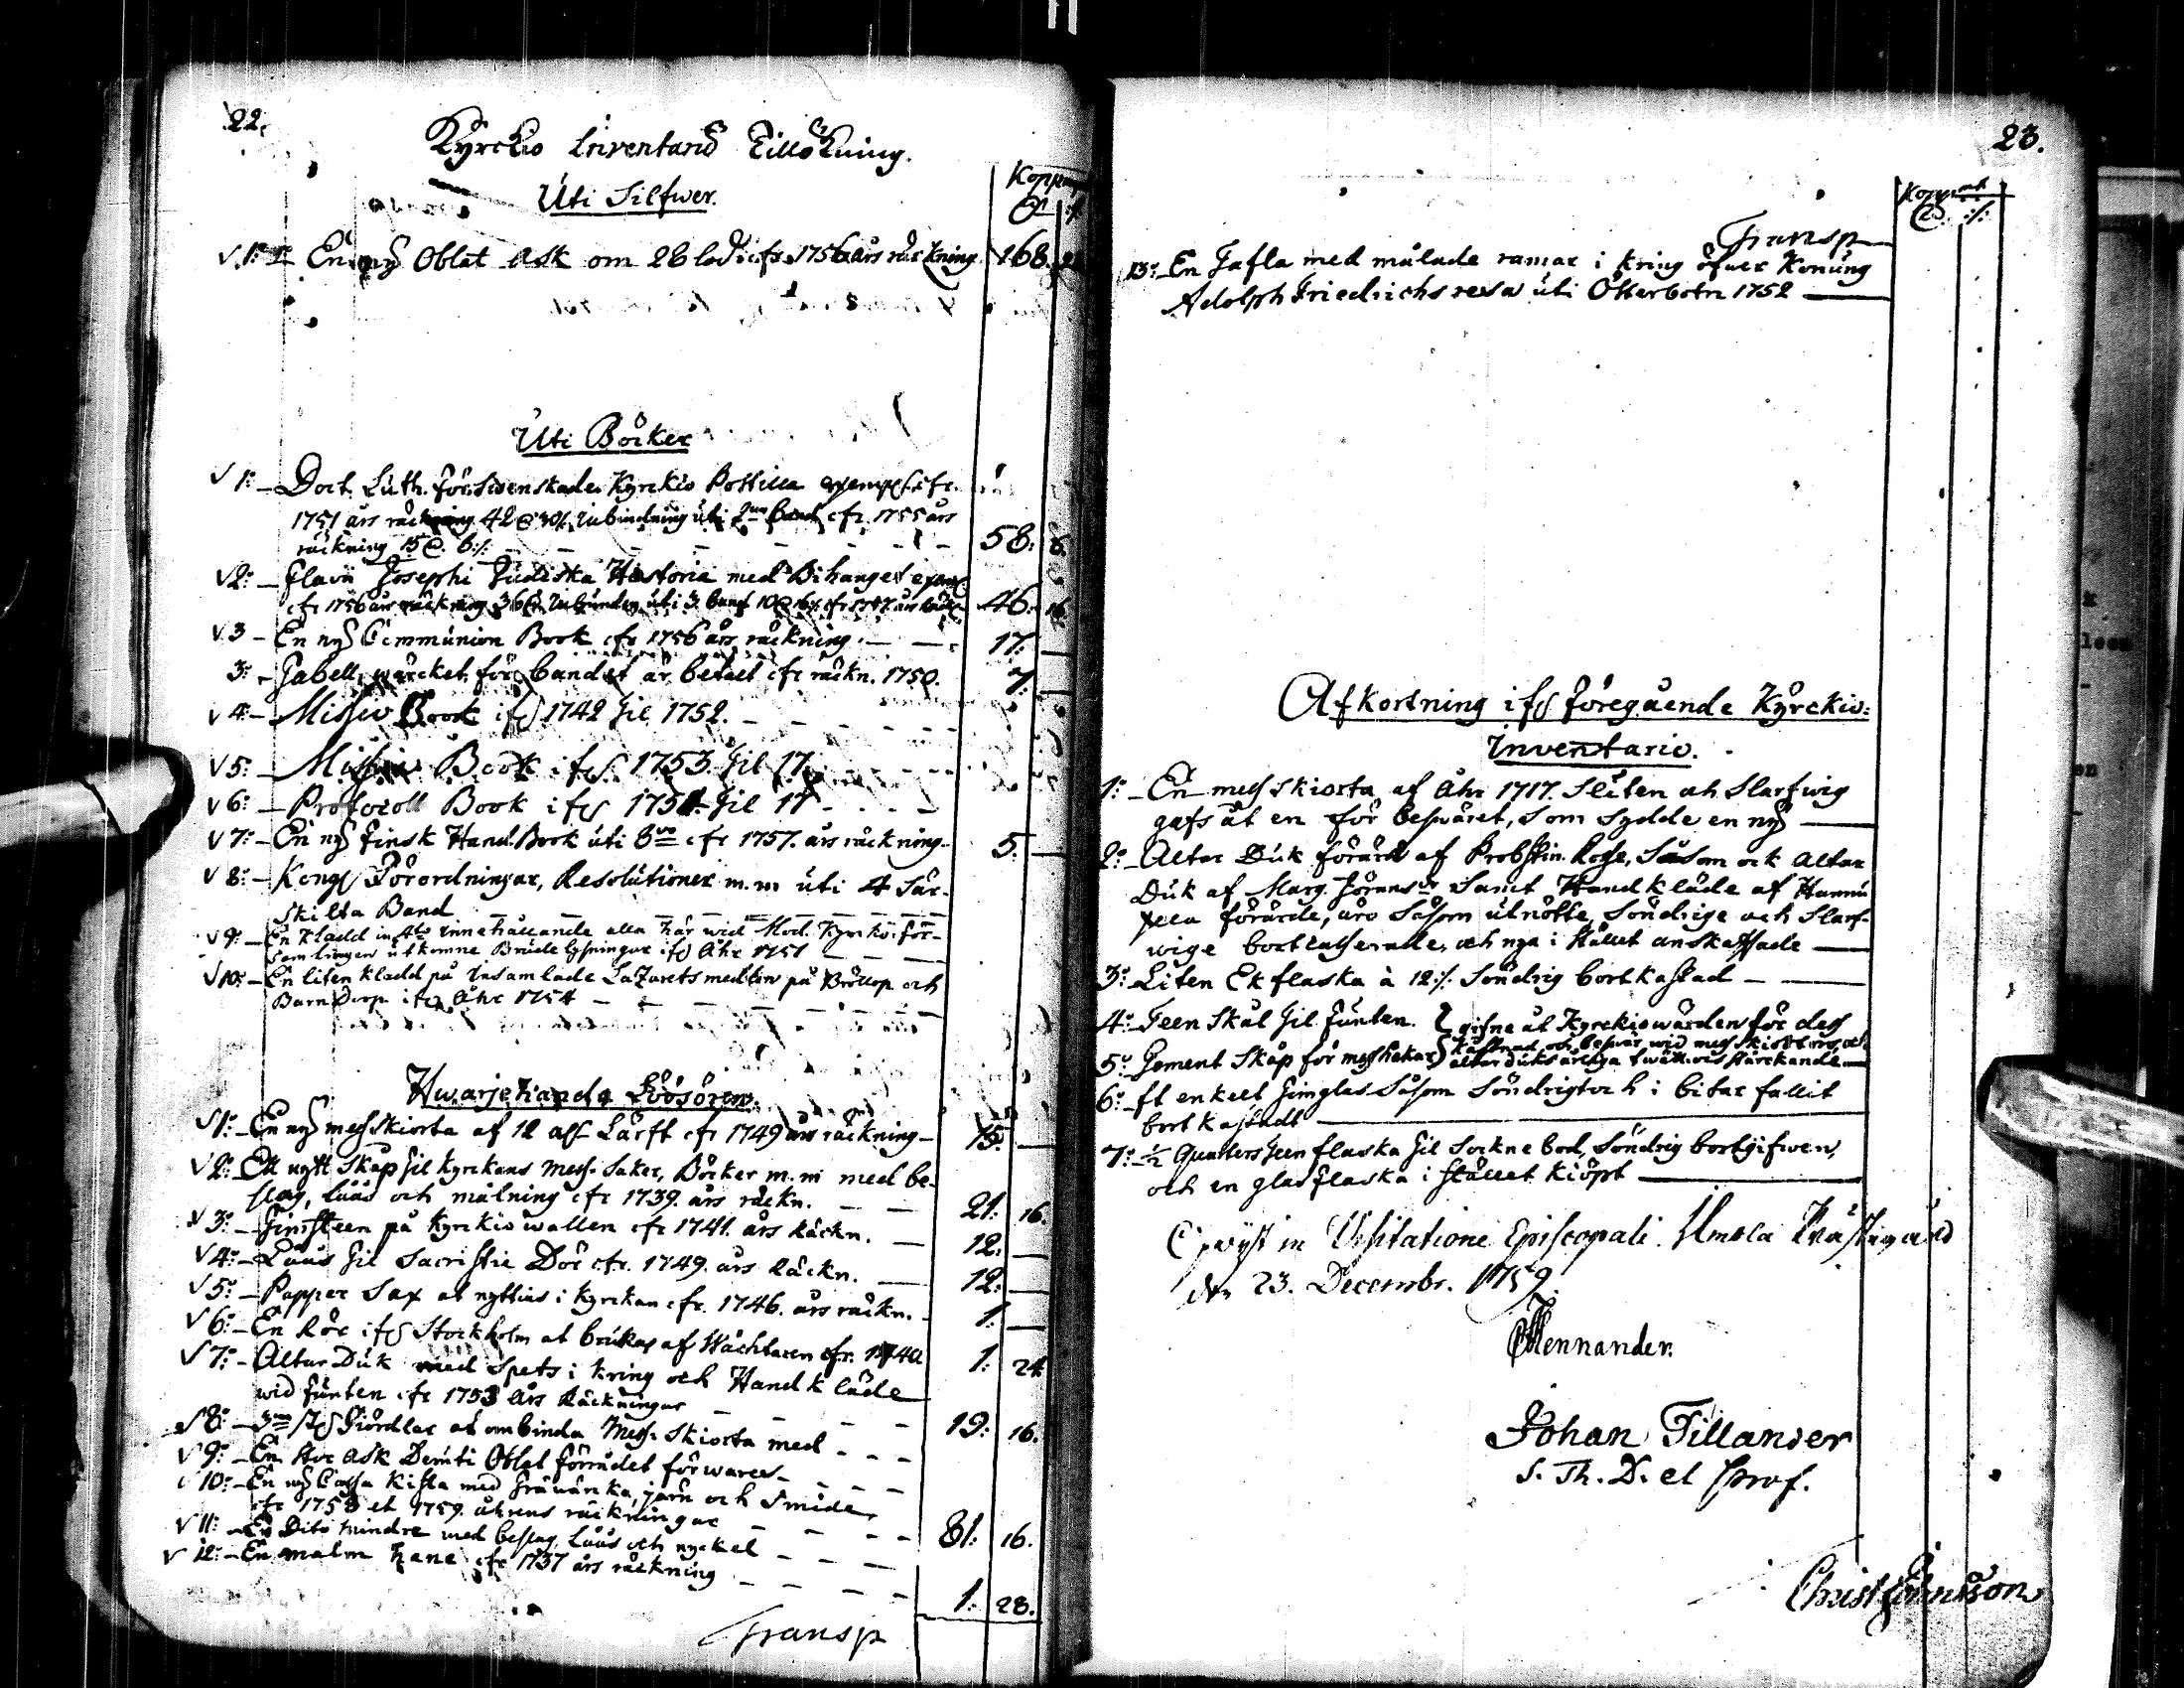 22.
Kyrckio Inventarii Tillökning.
Uti Silfwer.
Koppm
D. :/:
√ 1:o En ny Oblat Ask om 26 lod cfr. 1756 års räckning 168.
Uti Böcker
√ 1: Doct. Luth. förswenskade Kyrckio Postilla exempl. cfr.
1751 års räckning 42 D 30/: Inbindning uti 2ne band cfr. 1755 års
räckning 15 D. 6:/: 58: 6.
√ 2: Flavii Josephi Judiska Historia med Bihanget
cfr 1756 års räckning 36 D. Inbunden uti 3 band 10 D 16/: cfr 1757 års räkn. 46. 16
√ 3 En ny Communion Book cfr 1756 års räckning 17.
3: Tabell wärcket, för bandet är betalt cfr räckn. 1750. 7.
√ 4: Missiv Book ifr. 1742 til 1752.
√ 5: Missiv Book ifr. 1753. til 17
√ 6: Protocoll Book ifr 1751 til 17
√ 7: En ny Finsk Hand Book uti 8vo cfr 1757. års räckning. 5.
√ 8: Kongl Förordningar, Resolutioner m.m uti 4 Sär-
skilta Band
√ 9: En Kladd in 4to innehållande alla här wid Mod. Kyrkio för-
samlingen utkomne Brude lysningar ifr Åhr 1751
√ 10: En liten kladd på Insamlade Lazaretsmedlen på Bröllop och
Barndop ifr Åhr 1754
Hwarjehanda Lösören.
√ 1: En ny messkiorta af 12 aln Lärft cfr 1749 års räckning 15.
√ 2: Ett nytt Skåp til Kyrckans Mess Saker, Böcker m.m med be-
slag, låås och målning cfr 1739. års räckn. 21: 16.
√ 3: Timsteen på Kyrckio wallen cfr 1741. års Räckn. 12.
√ 4: Låås til Sacristie Dör cfr. 1749. års Räckn. 12.
√ 5: Papper Sax at nyttias i Kyrckan cfr. 1746. års räckn. 1.
√ 6: En Rör ifr Stockholm at brukas af Wächtaren cfr. 1740 1. 24
√ 7: Altar Duk med Spets i kring och Handkläde
wid funten cfr 1753 års Räckningar 19: 16.
√ 8: 3ne st Giördlar at ombinda Mess Skiorta med
√ 9: En stor Ask Deruti Oblat förrådet förwares
√ 10: En ny Cassa Kista med järn och Smide,
cfr 1758 et 1759. åhrens räckningar 81: 16.
√ 11: En Dito mindre med beslag, Låås och nyckel
√ 12: En malm hane cfr 1737 års räckning 1. 28.
Transp
23.
Koppmt
D. :/:
Transp
13: En Tafla med målade ramar i kring öfwer Konung
Adolph Friedrichs resa uti Österbotn 1752
Afkortning ifr föregående Kyrckio:
Inventario.
1: En messkiorta af Åhr 1717. Sliten och Slarfwig
gafs åt en för beswäret, som Sydde en ny
2: Altar Duk förärd af Probstin. Rosse, Såsom ock Altar
Duk af Marg. Jöransdr Samt Handkläde af Hannu
förärde, äro Såsom utnötte, Söndrige och Slarf-
wige bortcasserade, och nya i stället anskaffade
3: Liten Ek flaska à 12:/: Söndrig bortkastad
4: Teen Skål til Funten. } gifne åt Kyrckiowärden för dess
5: Gement Skåp för messhakar } kåstnad och beswär wid messkiortors och
altar duks årliga twätt och stärckande
6: Ett enkelt Timglas Såsom Söndrigt och i bitar fallit
bortkastadt
7: 1/2 Quarters Teen flaska til Sockne bod, Söndrig bortgifwen,
och en glasflaska i stället kiöpt
Opwyst in Visitatione Episcopali. Umola Prästegård
d. 23. Decembr. 1759.
CFMennander.
Johan Tillander
S. Th. D. et Prof.